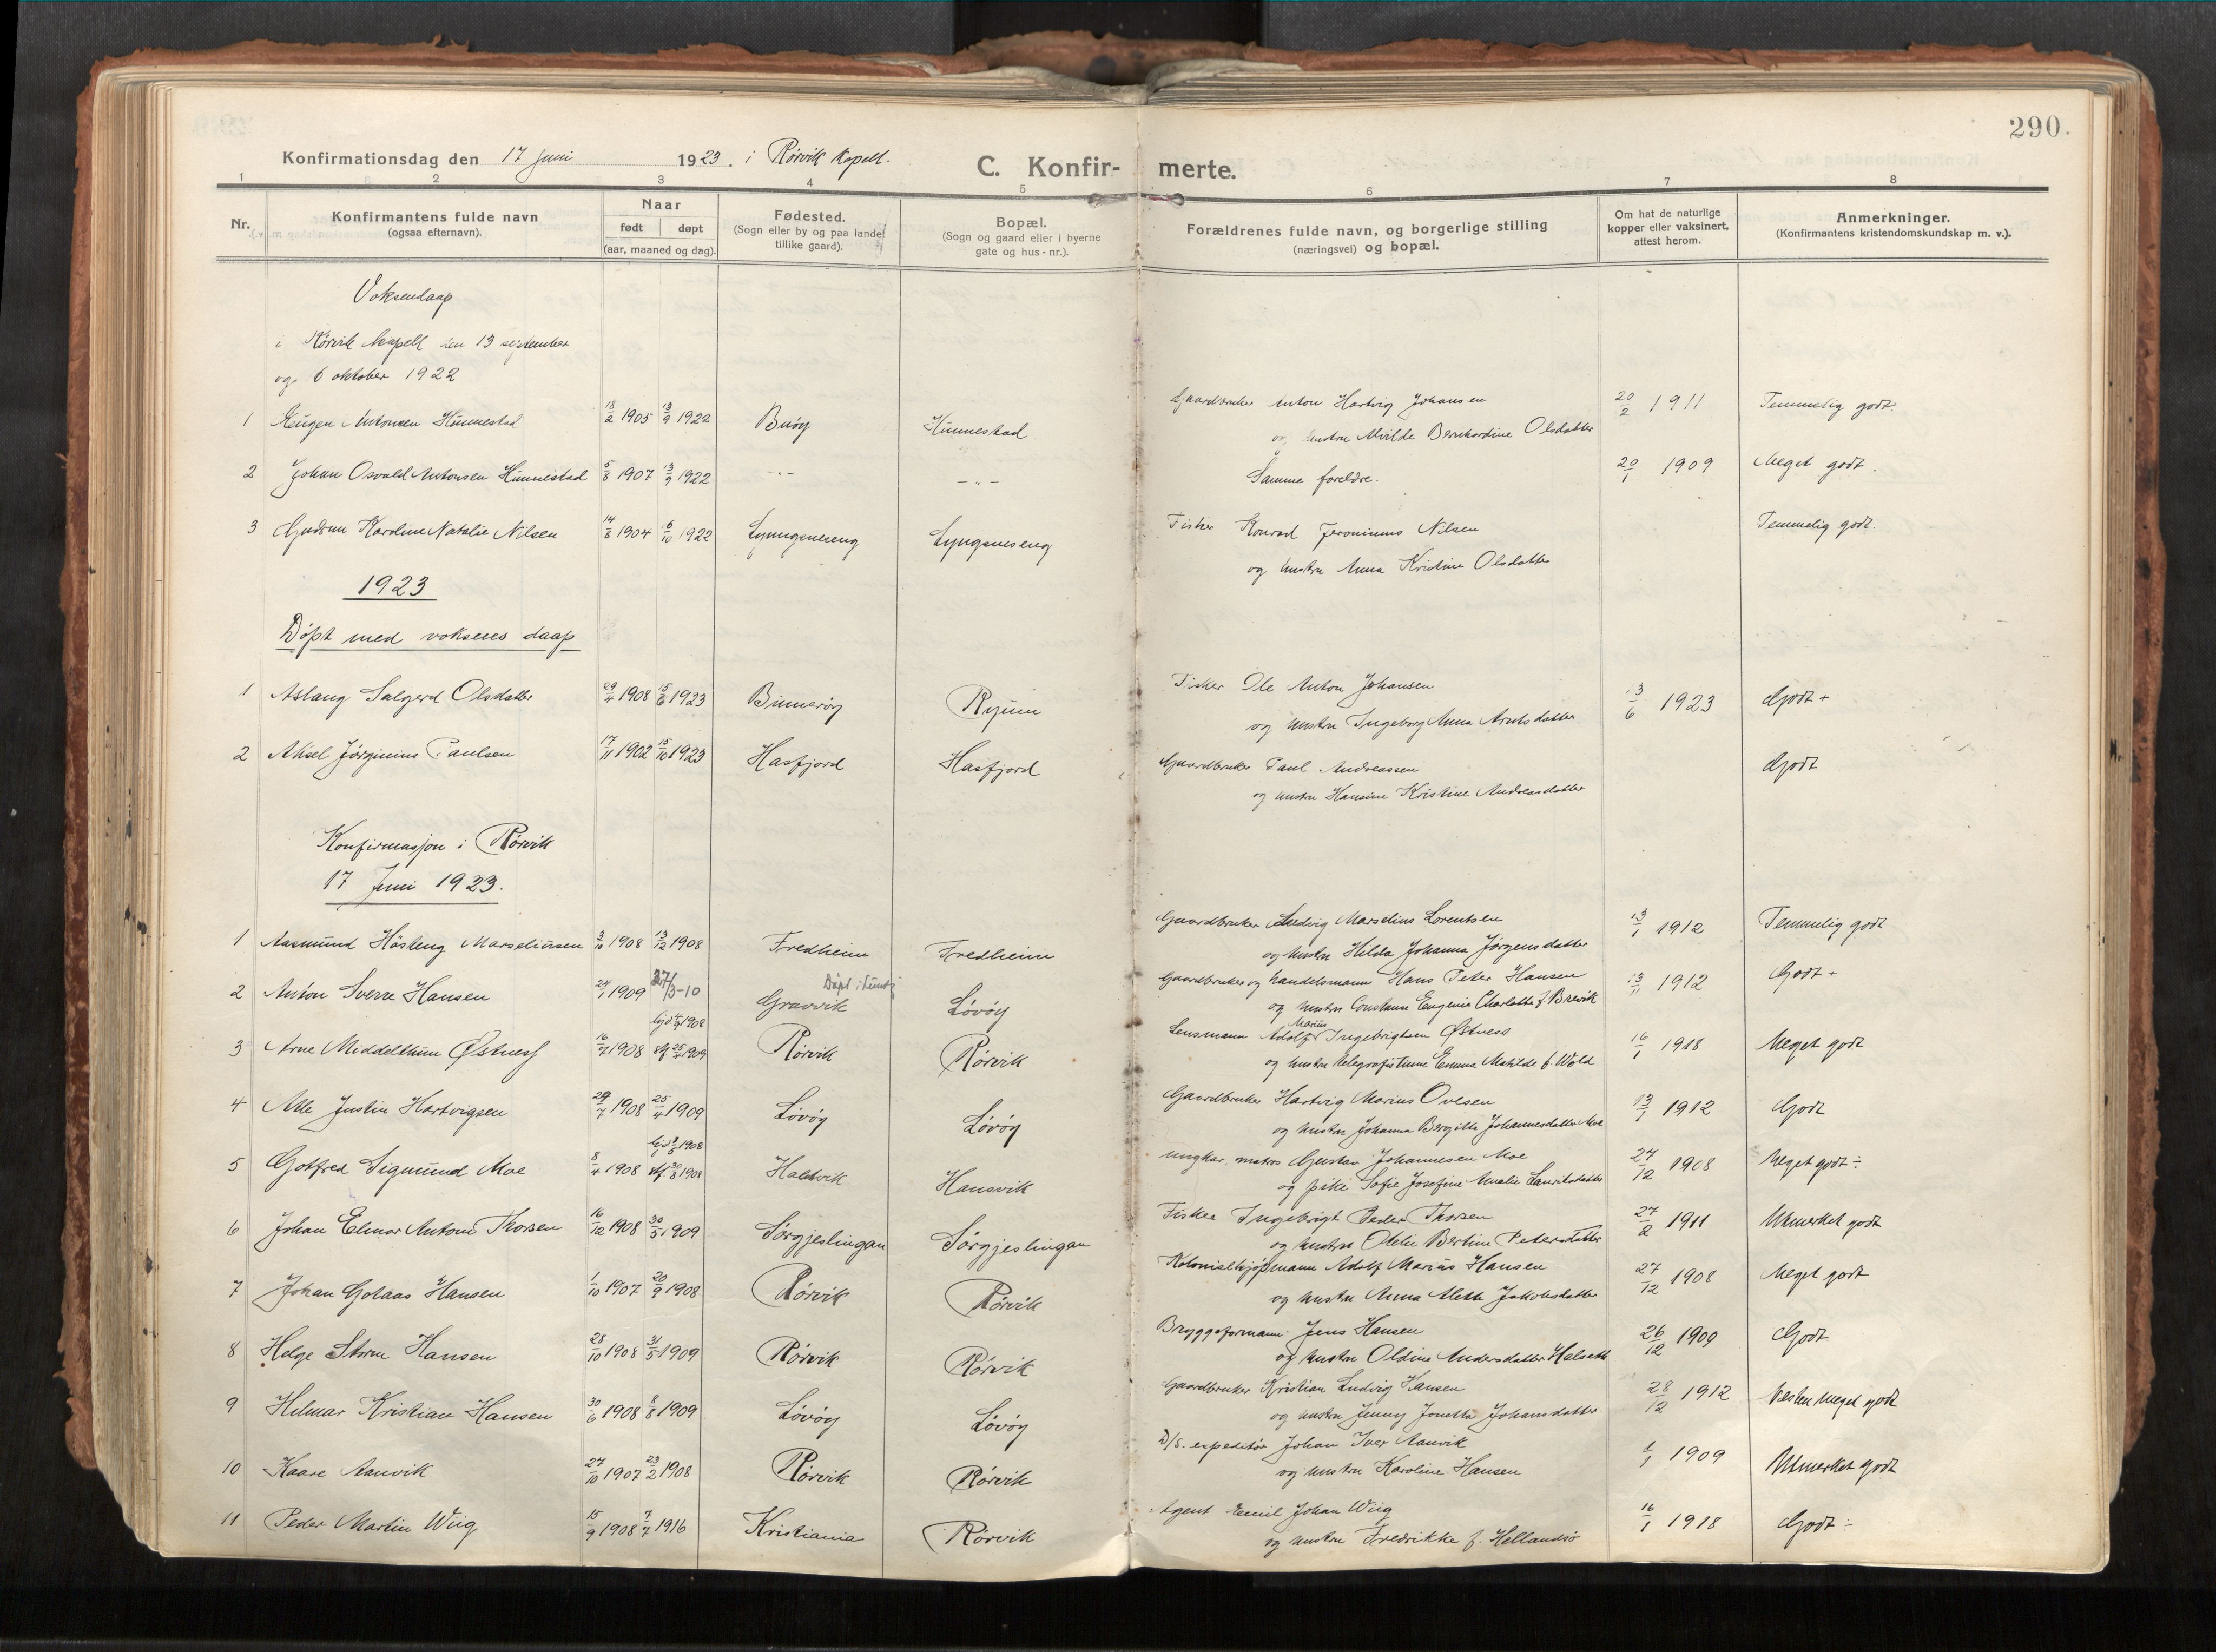 290.
Konfirmationsdag den 17 Juni 1923. i Rørvik Kapell.
C. Konfirmerte.
1 2 3 4 5 6 7 8
Nr.
Konfirmantens fulde navn
(ogsaa efternavn).
Naar
født døpt
(aar, maaned og dag).
Fødested.
(Sogn eller by og paa landet
tillike gaard).
Bopæl.
(Sogn og gaard eller i byerne
gate og hus-nr.).
Forældrenes fulde navn, og borgerlige stilling
(næringsvei) og bopæl.
Om hat de naturlige
kopper eller vaksinert,
attest herom.
Anmerkninger.
(Konfirmantens kristendomskundskap m. v.).
Voksendaap
i Rørvik kapell den 13 september
og 6 oktober 1922
1 Eugen Antonsen Hunnestad 18/2 1905 13/9 1922 Buøy Hunnestad Gaardbruker Anton Hartvig Johansen 20/2 1911 Temmelig godt.
og hustru Alvilde Bernhardine Olsdatter
2 Johan Osvald Antonsen Hunnestad 5/8 1907 13/9 1922 -"- -"- Samme foreldre. 20/1 1909 Meget godt.
3 Gudrun Karoline Natalie Nilsen 14/8 1904 6/10 1922 Lyngsneseng Lyngsneseng Fisker Konrad Jeronimus Nilsen Temmelig godt.
og hustru Anna Kristine Olsdatter
1923
Døpt med voksenes daap
1 Aslaug Salgerd Olsdatter 29/4 1908 15/6 1923 Binnerøy Ryum Fisker Ole Anton Johansen 3/6 1923 Godt +
og hustru Ingeborg Anna Arntsdatter
2 Aksel Jørginius Paulsen 17/11 1902 15/10 1923 Hasfjord Hasfjord Gaardbruker Paul Andreassen Godt
og hustru Hansine Kristine Andreasdatter
Konfirmasjon i Rørvik
17 Juni 1923.
1 Aasmund Høsteng Marseliusen 3/10 1908 13/12 1908 Fredheim Fredheim Gaardbruker Ludvig Marselius Lorentsen 13/1 1912 Temmelig godt
og hustru Hilda Johanna Jørgensdatter
2 Anton Sverre Hansen 24/1 1909 27/3-10 Døpt i Gravvik Løvøy Gaardbruker og handelsmann Hans Peter Hansen 13/11 1912 Godt +
og hustru Constance Eugenie Charlotte f. Brevik
3 Arne Middelthun Østness 16/7 1908 hjd 1908 stf 25/4 1909 Rørvik Rørvik Lensmann Adolf Marius Ingebrigtsen Østness 16/1 1918 Meget godt
og hustru telegrafistinne Emma Matilde f. Wold
4 Atle Justin Hartvigsen 29/7 1908 25/4 1909 Løvøy Løvøy Gaardbruker Hartvig Marius Ovesen 13/1 1912 Godt
og hustru Johanna Bergitte Johannesdatter Moe
5 Gotfred Sigmund Moe 8/4 1908 hjd 1908 stf 30/8 1908 Hansvik Ungkar, matros Gustav Johannesen Moe 27/12 1908 Meget godt ÷
og pike Sofie Josefine Amalie Lauritsdatter
6 Johan Elmar Antoni Thorsen 16/12 1908 30/5 1909 Sørgjeslingan Sørgjeslingan Fisker Ingebrigt Peder Thorsen 27/2 1911 Utmerket godt
og hustru Otelie Bertine Petersdatter
7 Johan Golaas Hansen 1/10 1907 20/9 1908 Rørvik Rørvik Kolonialkjøpmann Adolf Marius Hansen 27/12 1908 Meget godt
og hustru Anna Aletta Jakobsdatter
8 Helge Storm Hansen 28/10 1908 31/5 1909 Rørvik Rørvik Bryggeformann Jens Hansen 26/12 1909 Godt
og hustru Oldine Andersdatter Halseth
9 Hilmar Kristian Hansen 30/6 1908 8/8 1909 Løvøy Løvøy Gaardbruker Kristian Ludvig Hansen 28/12 1912 Nesten meget godt
og hustru Jenny Jonetta Johansdatter
10 Kaare Aanvik 24/10 1907 23/2 1908 Rørvik Rørvik D/S. expeditør Johan Iver Aanvik 1/1 1909 Utmerket godt
og hustru Karoline Hansen
11 Peder Martin Wiig 15/9 1908 7/7 1916 Kristiania Rørvik Agent Emil Johan Wiig 16/1 1918 Godt ÷
og hustru Fredrikke f. Hellandsjø